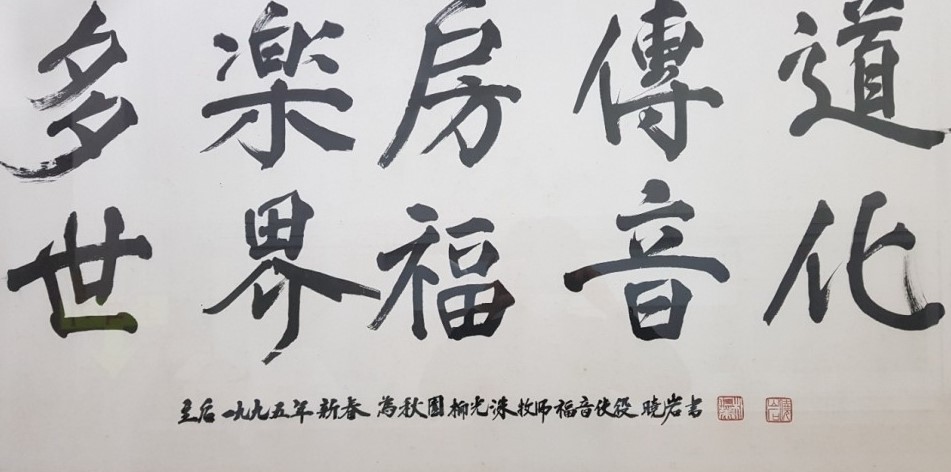 多楽房傳道
世界福音化
主后 一九九五年 新春 為秋園 柳光洙牧师 福音使役 暁岩書